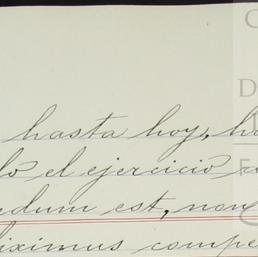 hasta hoy, h
lo el ejercicio
dum est, non
iximus compe